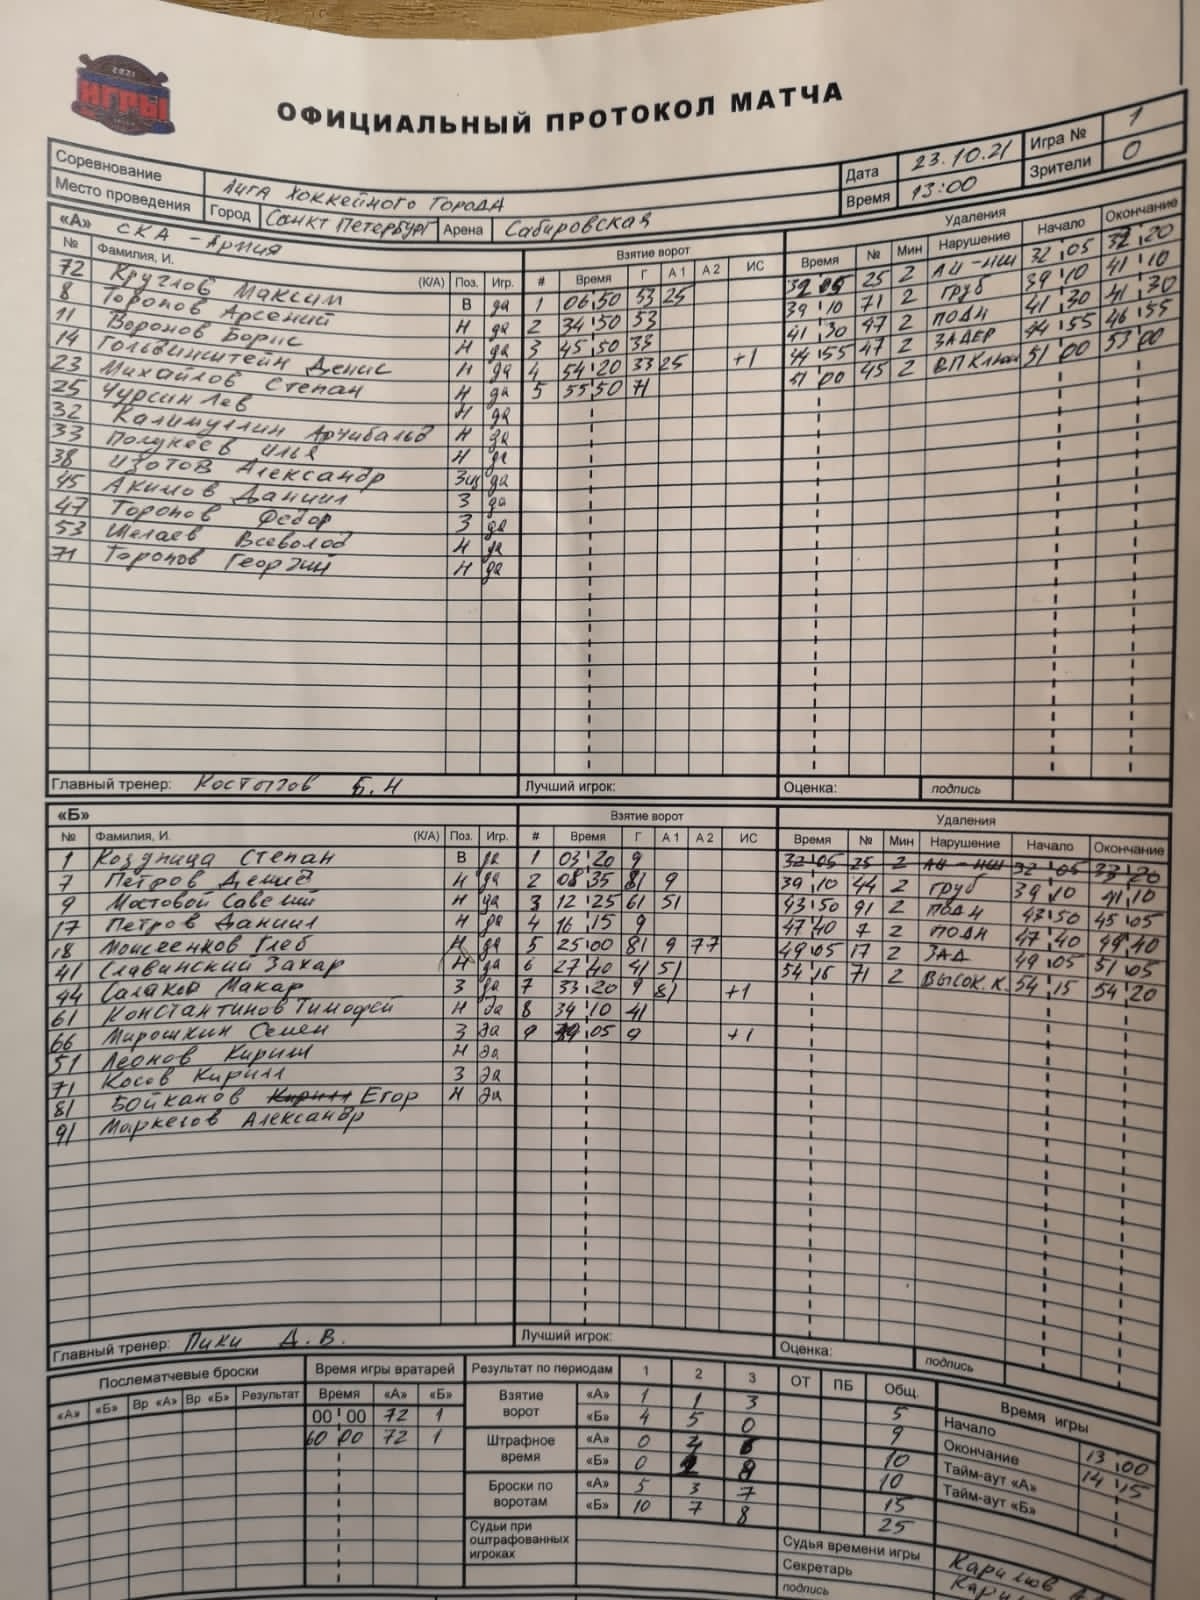 2021
ИГРЫ
ОФИЦИАЛЬНЫЙ ПРОТОКОЛ МАТЧА
Соревнование Лига Хоккейного Города Дата 23.10.21 Игра № 1
Место проведения Город Санкт Петербург Арена Сабировская Время 13:00 Зрители 0
«А» СКА - Армия Взятие ворот Удаления
№ Фамилия, И. (К/А) Поз. Игр. # Время Г А1 А2 ИС Время № Мин Нарушение Начало Окончание
72 Круглов Максим В да 1 06 50 53 25 25 2 АЦ-НШ 32 05 20
8 Торопов Арсений Н да 2 34 50 53 39 10 71 2 груб 39 10 41 10
11 Воронов Борис Н да 3 45 50 33 41 30 47 2 ПОДН 41 30 41 30
14 Гольвинштейн Денис Н да 4 54 20 33 25 +1 44 55 47 2 ЗАДЕР 44 55 46 55
23 Михайлов Степан Н да 5 55 50 71 51 00 45 2 51 00 53 00
25 Чурсин Лев Н да
32 Калимуллин Арчибальд Н да
33 Полукеев Илья Н да
38 Изотов Александр Защ да
45 Акимов Даниил З да
47 Торопов Федор З да
53 Шелаев Всеволод Н да
71 Торопов Георгий Н да
Главный тренер: Костылов Б.Н Лучший игрок: Оценка: подпись
«Б» Взятие ворот Удаления
№ Фамилия, И. (К/А) Поз. Игр. # Время Г А1 А2 ИС Время № Мин Нарушение Начало Окончание
1 Козупица Степан В да 1 03 20 9 32 05 25 2 АЦ-НШ 32 05 33 20
7 Петров Демид Н да 2 08 35 81 9 39 10 44 2 груб 39 10 41 10
9 Мостовой Савелий Н да 3 12 25 61 51 43 50 91 2 ПОДН 43 50 45 05
17 Петров Даниил Н да 4 16 15 9 47 40 7 2 ПОДН 47 40 49 40
18 Моисеенков Глеб Н да 5 25 00 81 9 77 49 05 17 2 ЗАД 49 05 51 05
41 Славинский Захар Н да 6 27 40 41 51 54 15 71 2 ВЫСОК.К. 54 15 54 20
44 Салаков Макар З да 7 33 20 9 81 +1
61 Константинов Тимофей Н да 8 34 10 41
66 Мирошкин Семен З да 9 05 9 +1
51 Леонов Кирилл Н да
71 Косов Кирилл З да
81 Бойканов Кирилл Егор Н да
91 Маркелов Александр
Главный тренер: Пики Д.В. Лучший игрок: Оценка: подпись
Послематчевые броски Время игры вратарей Результат по периодам 1 2 3 ОТ ПБ Общ. Время игры
«А» «Б» Вр «А» Вр «Б» Результат Время «А» «Б»
00 00 72 1
60 00 72 1
Взятие ворот «А» 1 1 3 5
«Б» 4 5 0 9
Штрафное время «А» 0 4 6 10
«Б» 0 2 8 10
Броски по воротам «А» 5 3 7 15
«Б» 10 7 8 25
Начало 13 00
Окончание 14 15
Тайм-аут «А»
Тайм-аут «Б»
Судьи при оштрафованных игроках
Судья времени игры Каримов
Секретарь
подпись